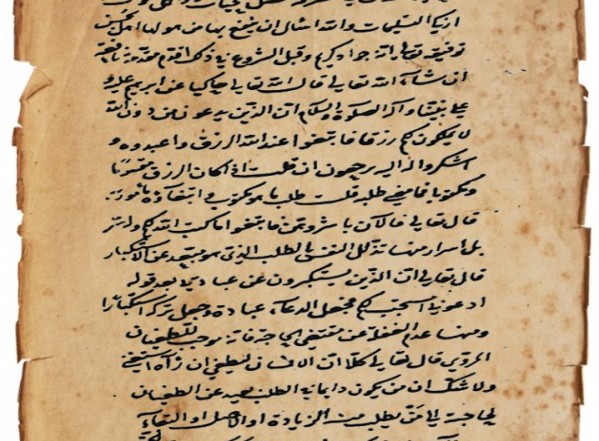 ازكى التسليمات والله اسأل ان ينفع بها من هو لها اهل بحسن
توفيقه تعالى انه جواد كريم وقبل الشروع في ذلك اقدم مقدمة نافعة
ان شاء الله تعالى قال الله تعالى حاكيا عن ابراهيم عليه و
على نبينا وآله الصلوة والسلام ان الذين تدعون من دون الله
لا يملكون لكم رزقا فابتغوا عند الله الرزق واعبدوه و
اشكروا له اليه ترجعون ان قلت اذا كان الرزق مقسوما
ومكتوبا فما معنى طلبه قلت طلب ما هو مكتوب وابتغاؤه مأمور به
قال تعالى فالآن باشروهن وابتغوا ما كتب الله لكم والسر
بل اسرار منها تذلل النفس بالطلب الذي هو مبعد عن الاستكبار
قال تعالى ان الذين يستكبرون عن عبادتي بعد قوله
ادعوني استجب لكم فجعل الدعاء عبادة وجعل تركه استكبارا
ومنها عدم الغفلة عن مقتضى الحاجة فانه موجب للطغيان
المردي قال تعالى كلا ان الانسان ليطغى ان رآه استغنى
ولا شك ان من يكون دايما في الطلب بعيد عن الطغيان
الحاجة الى من يطلب منه الزيادة او الاصل او البقاء